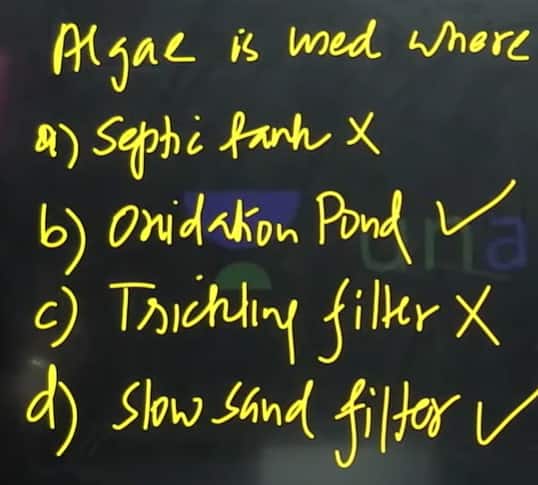 Algae is used where
a) Septic tank X
b) Oxidation Pond ✓
c) Trickling filter X
d) Slow sand filter ✓
una